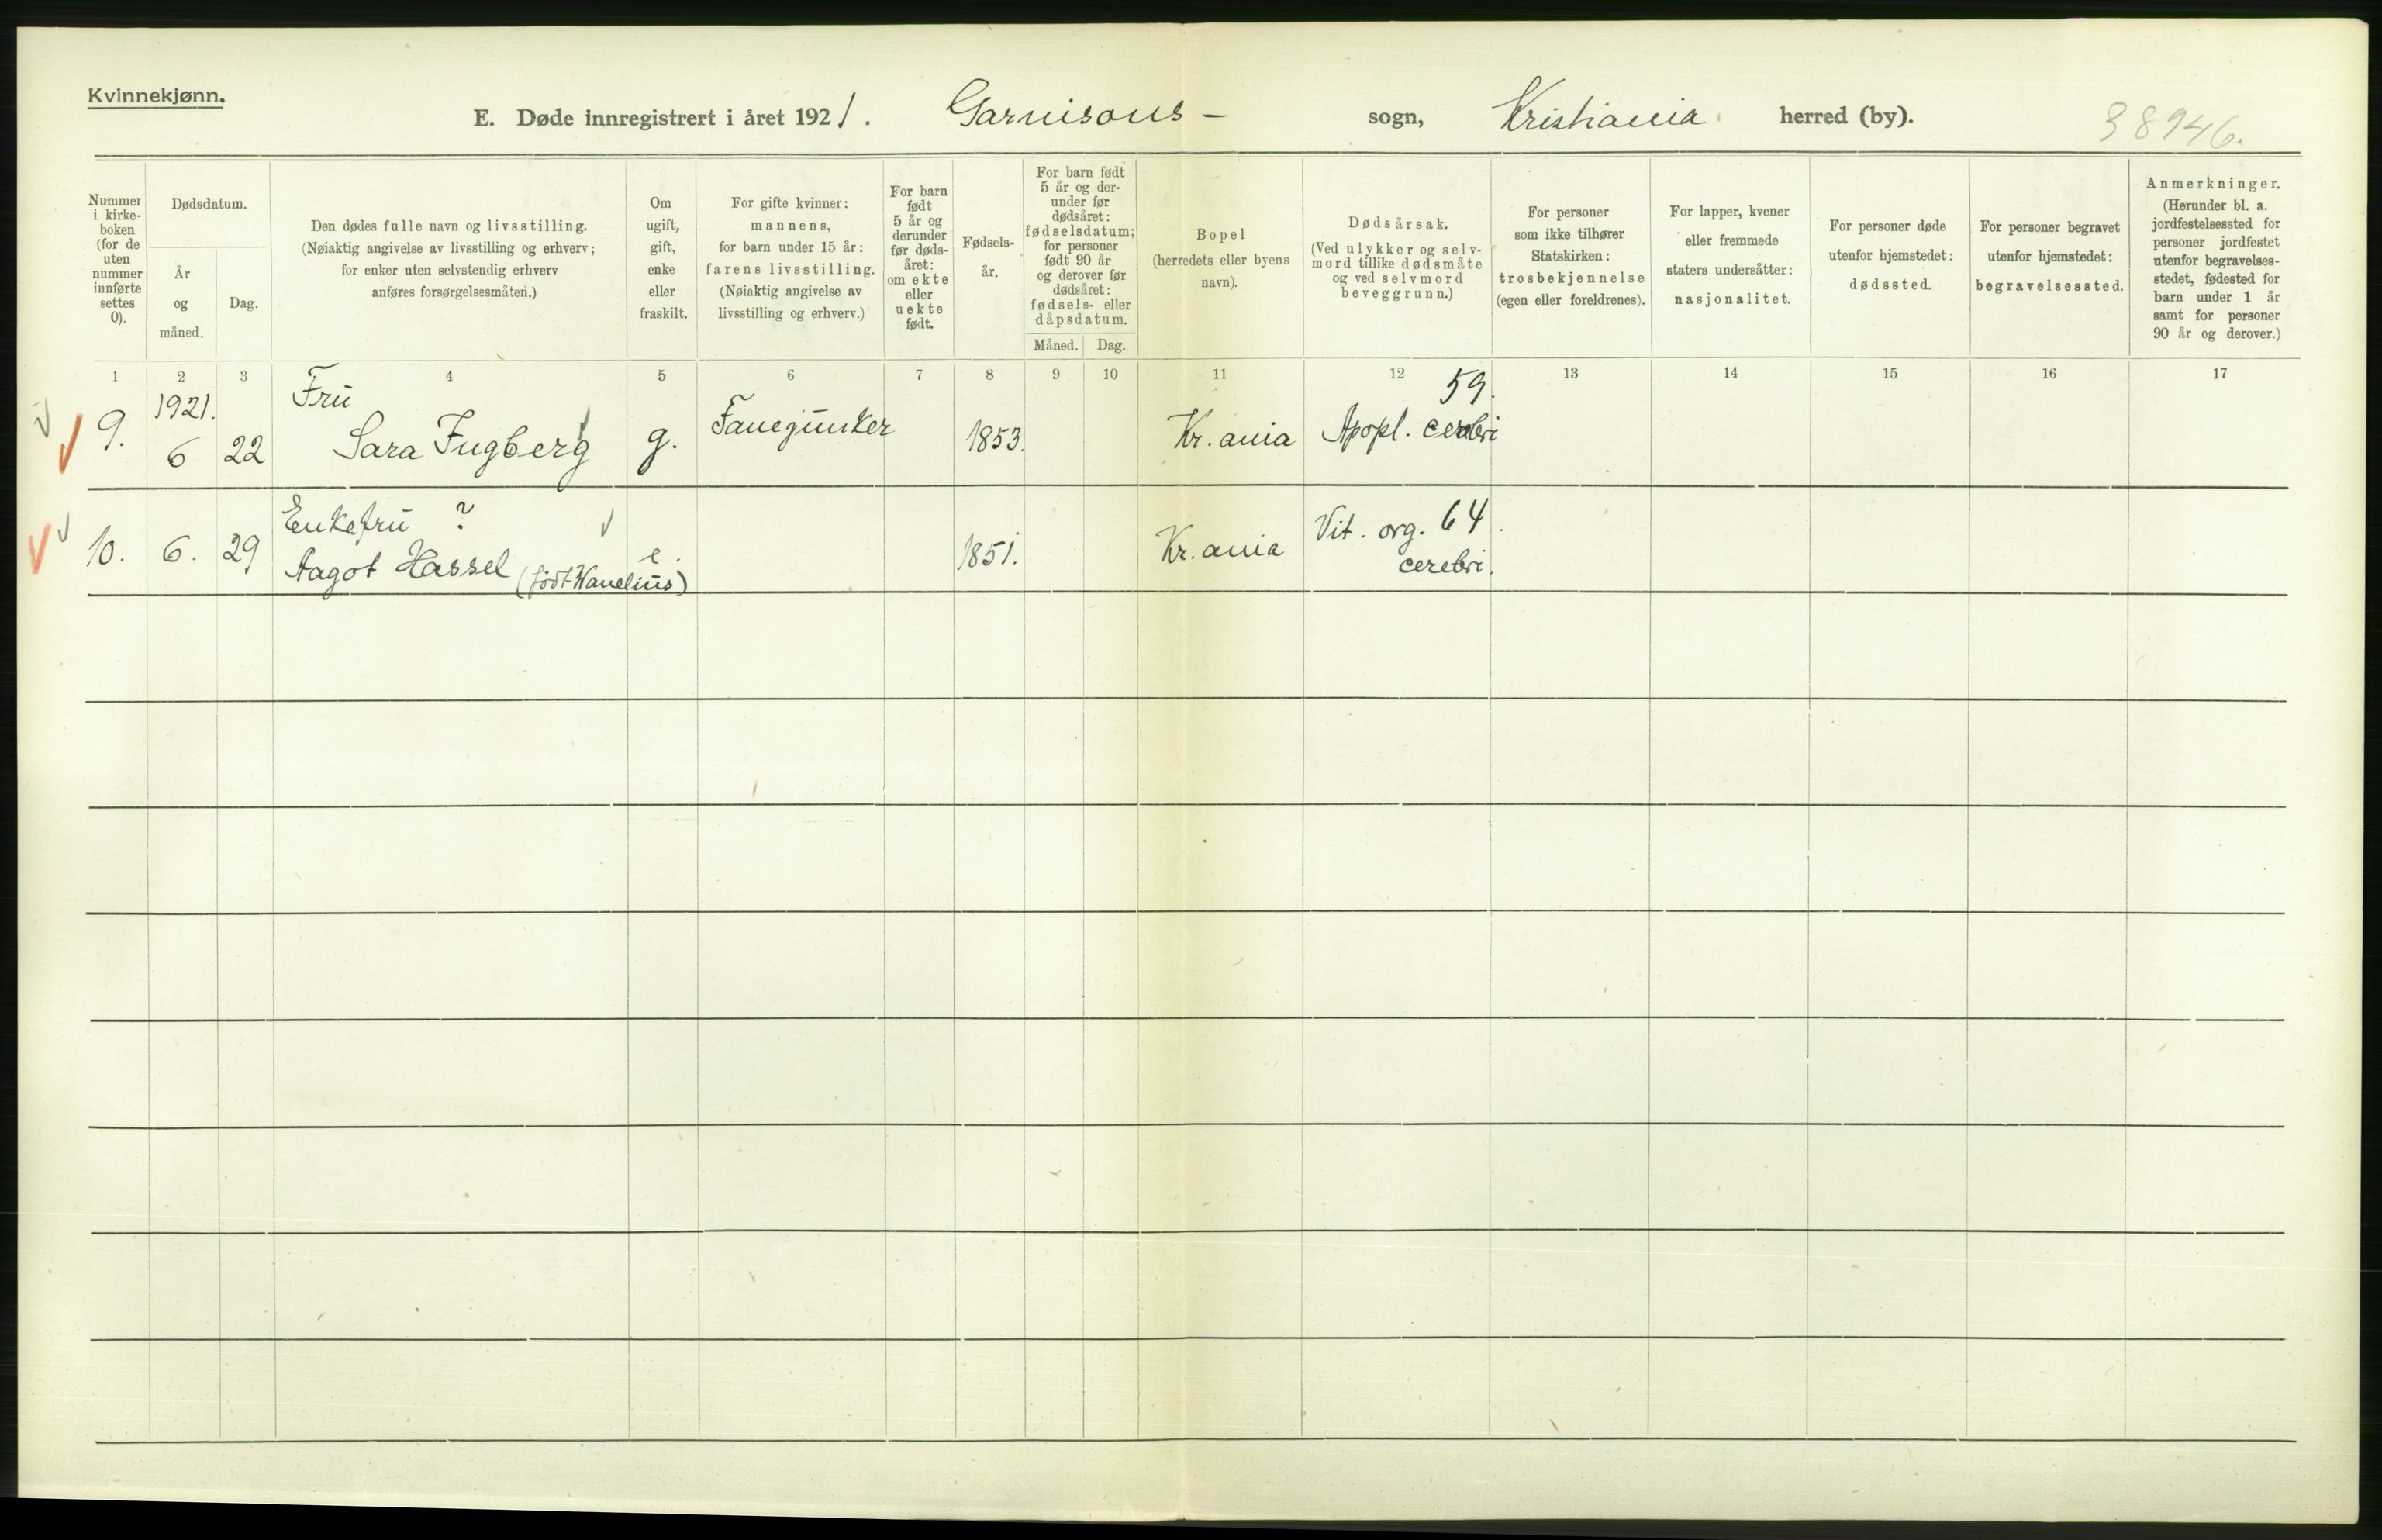 Kvinnekjønn.
E. Døde innregistrert i året 1921. Garnisons - sogn, Kristiania herred (by). 38946.
Nummer
i kirke-
boken
(for de
uten
nummer
innførte
settes
0).
Dødsdatum.
År
og
måned.
Dag.
Den dødes fulle navn og livsstilling.
(Nøiaktig angivelse av livsstilling og erhverv;
for enker uten selvstendig erhverv
anføres forsørgelsesmåten.)
Om
ugift,
gift,
enke
eller
fraskilt.
For gifte kvinner:
mannens,
for barn under 15 år:
farens livsstilling.
(Nøiaktig angivelse av
livsstilling og erhverv.)
For barn
født
5 år og
derunder
før døds-
året:
om ekte
eller
uekte
født.
Fødsels-
år.
For barn født
5 år og der-
under før
dødsåret:
fødselsdatum;
for personer
født 90 år
og derover før
dødsåret:
fødsels- eller
dåpsdatum.
Måned. Dag.
Bopel
(herredets eller byens
navn).
Dødsårsak.
(Ved ulykker og selv-
mord tillike dødsmåte
og ved selvmord
beveggrunn.)
For personer
som ikke tilhører
Statskirken:
trosbekjennelse
(egen eller foreldrenes).
For lapper, kvener
eller fremmede
staters undersåtter:
nasjonalitet.
For personer døde
utenfor hjemstedet:
dødssted.
For personer begravet
utenfor hjemstedet:
begravelsessted.
Anmerkninger.
(Herunder bl. a.
jordfestelsessted for
personer jordfestet
utenfor begravelses-
stedet, fødested for
barn under 1 år
samt for personer
90 år og derover.)
1 2 3 4 5 6 7 8 9 10 11 12 13 14 15 16 17
1921. Fru 59.
9. 6 22 Sara Fugberg g. Fanejunker 1853. Kr.ania Apopl. cerebri
Enkefru ? Vit. org. 64.
10. 6. 29 Aagot Hassel (født Wanelius) e. 1851. Kr.ania cerebri.